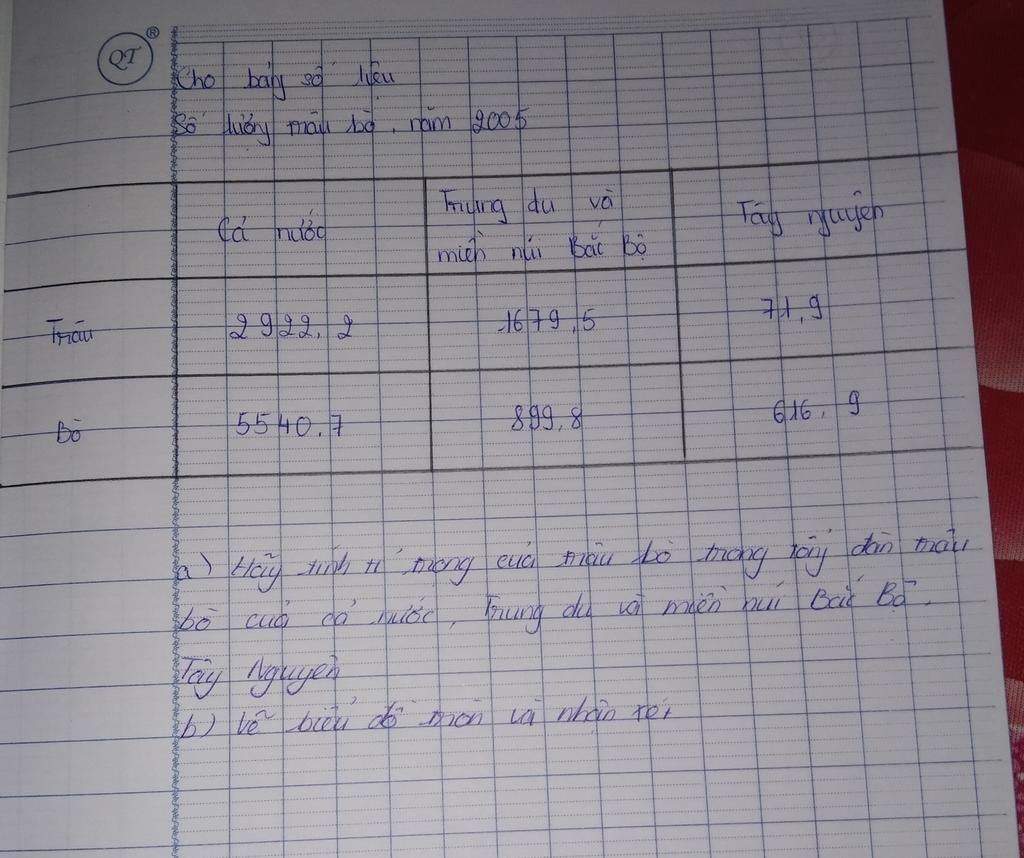 QT ®
Cho bảng số liệu
Số lượng trâu bò, năm 2005
Cả nước
Trung du và
miền núi Bắc Bộ
Tây nguyên
Trâu
2922,2
1679,5
71,9
Bò
5540.7
899,8
616,9
a) Hãy tính tỉ trọng của trâu bò trong tổng đàn trâu
bò của cả nước, Trung du và miền núi Bắc Bộ.
Tây Nguyên
b) Vẽ biểu đồ tròn và nhận xét